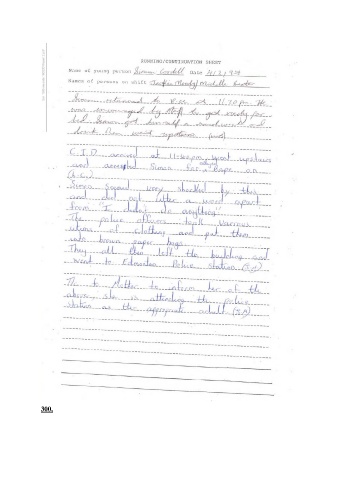 RUNNING/CONTINUATION SHEET
Name of young person: Simon Cordell Date 4/2/98
Names of persons on shift
Simon returned to at 11.20pm. He
was encouraged by staff to get ready for
bed. Simon got himself a and
drink then went upstairs
C.I.D arrived at 11-30pm, went upstairs
and arrested Simon for Rape on
Simon seemed very shocked by this
and did not utter a word apart
from "I didn't do anything"
The police officers took various
items of clothing and put them
into brown paper bags.
They all then left the building and
went to Edmonton Police Station
T/c to Mother to inform her of the
above, she is attending the police
station as the appropriate adult
300.